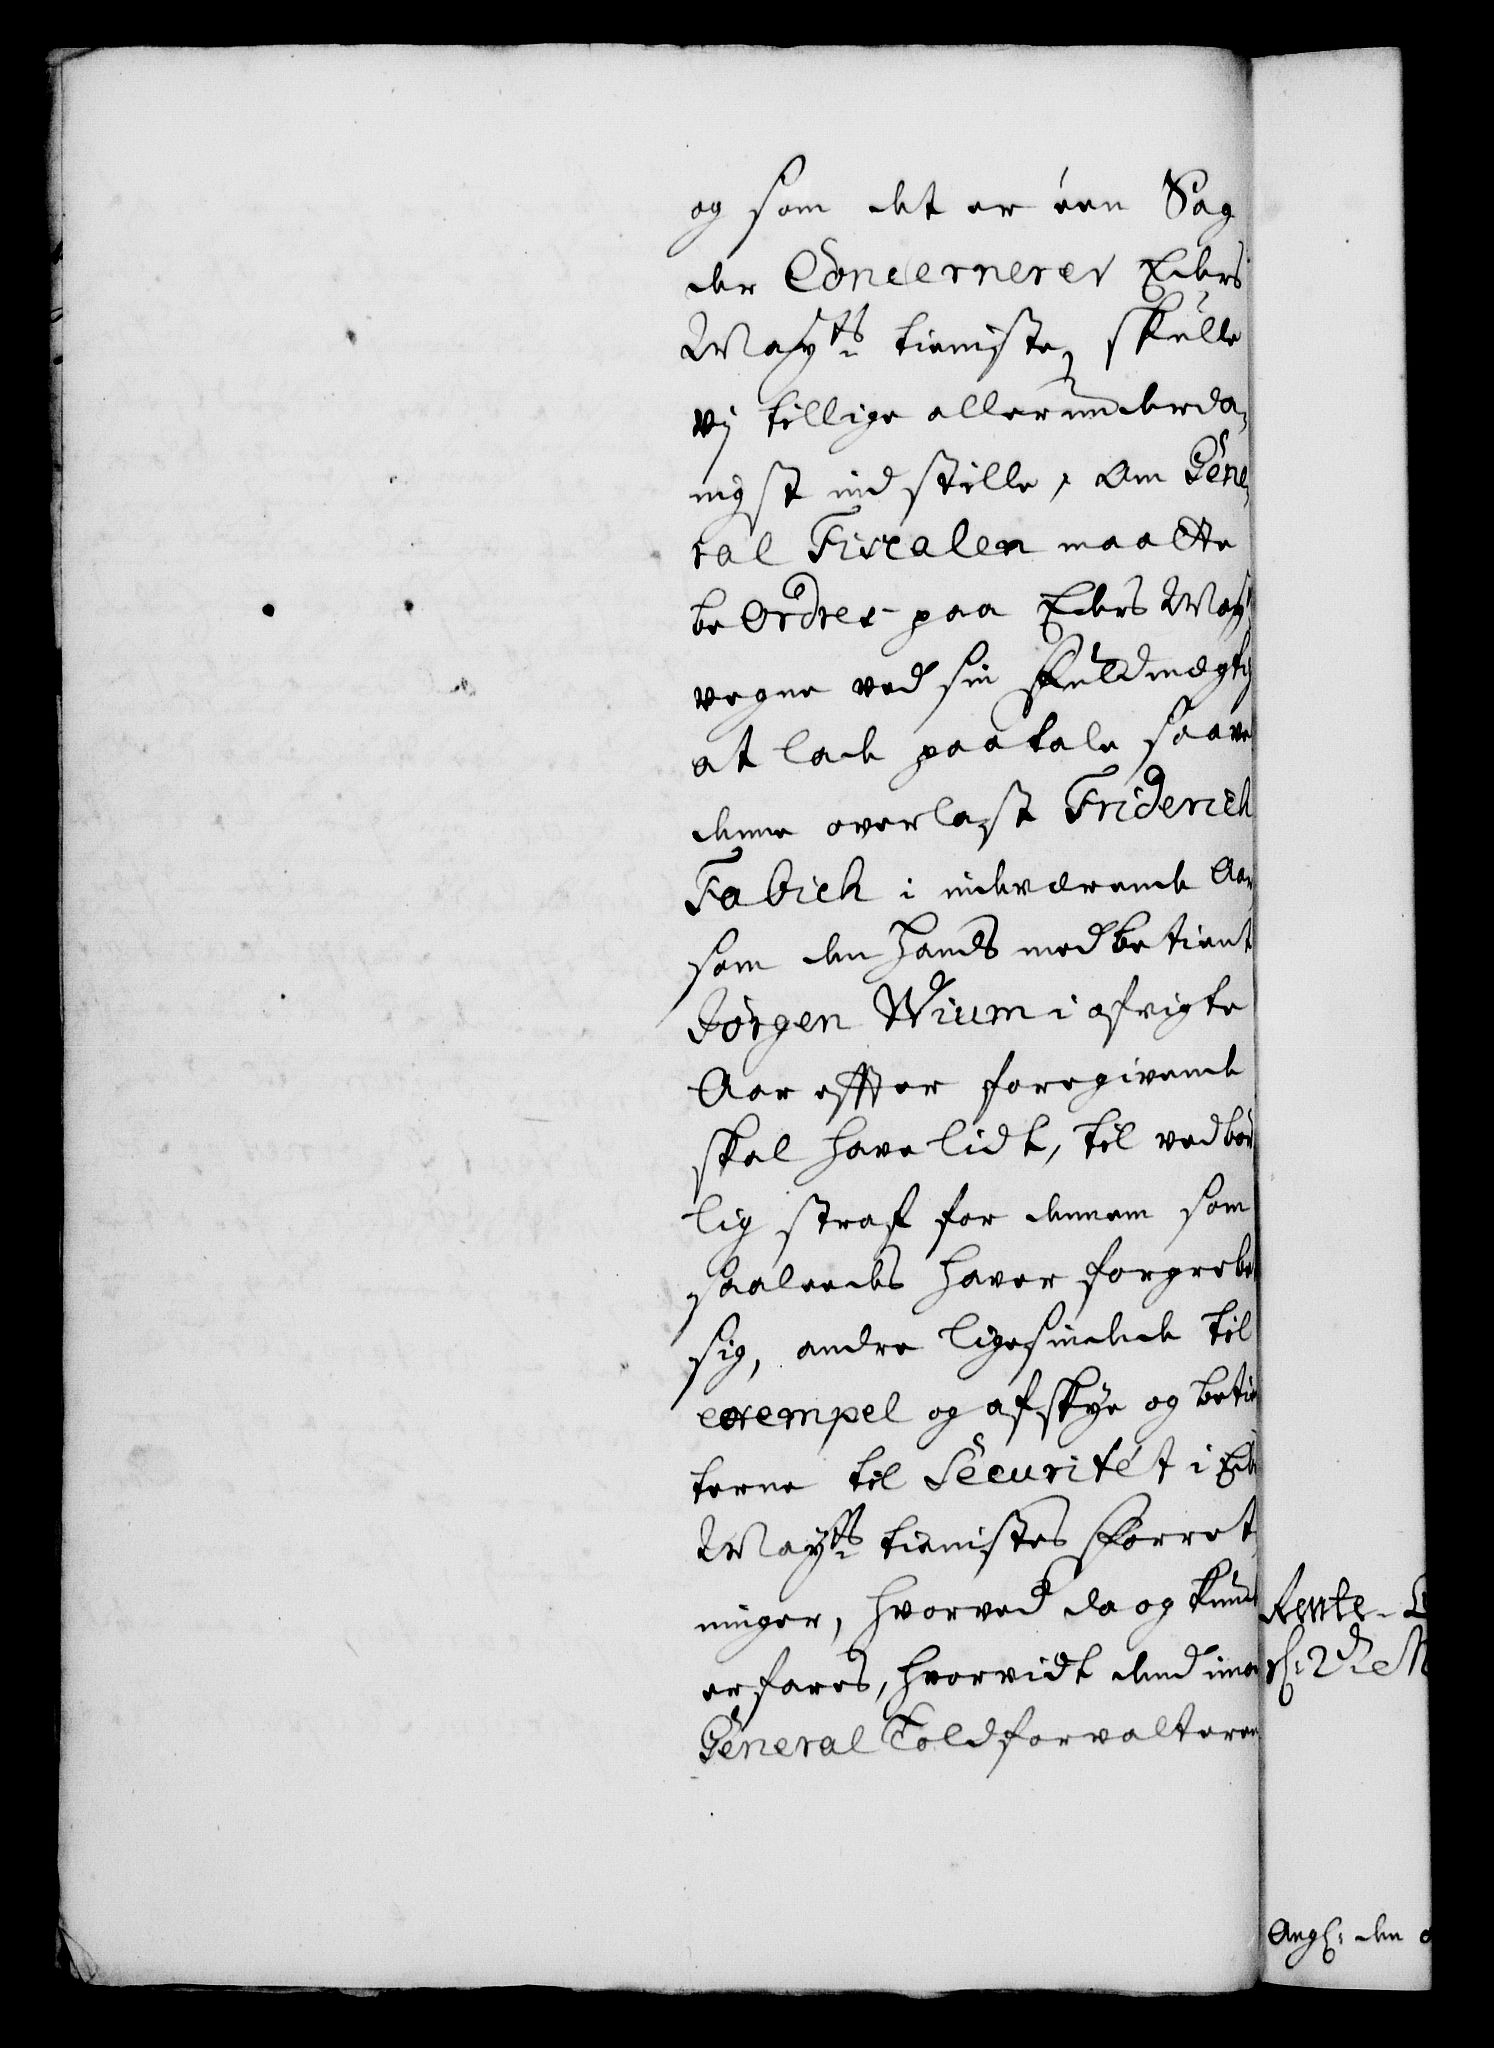 og som det er éen Sag
der Concernerer Eders
Mayts tieniste, skulle
vij tillige allerunderda-
nigst indstille, om Gene-
ral Fiscalen maatte
beOrdres paa Eders Mayts
vegne ved sin fuldmægtig
at lade paatale saavel
denne overlast Friderich
Fabich i indeværende Aar
som den hands medbetient
Jörgen Wium i afvigte
Aar effter foregivende
skal have lidt, til vedbör
lig straf for dennem som
saaleedes haver forgrebet
sig, andre ligesindede til
exempel og afskye og betien
terne til Securitét i Eders
Mayts tienistes forret
ninger, hvorved da og kunde
erfares, hvorvidt dend ima
General Toldforvalteren
Rente-
d: 2de M
Angl: den